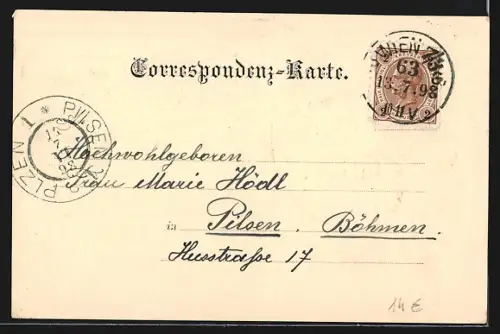 Correspondenz-Karte.
WIEN
63
13.7.98
PILSEN 2
PLZEN 1
Hochwohlgeboren
Frau Marie Hödl
in Pilsen. Böhmen.
Husstraße 17
14 €